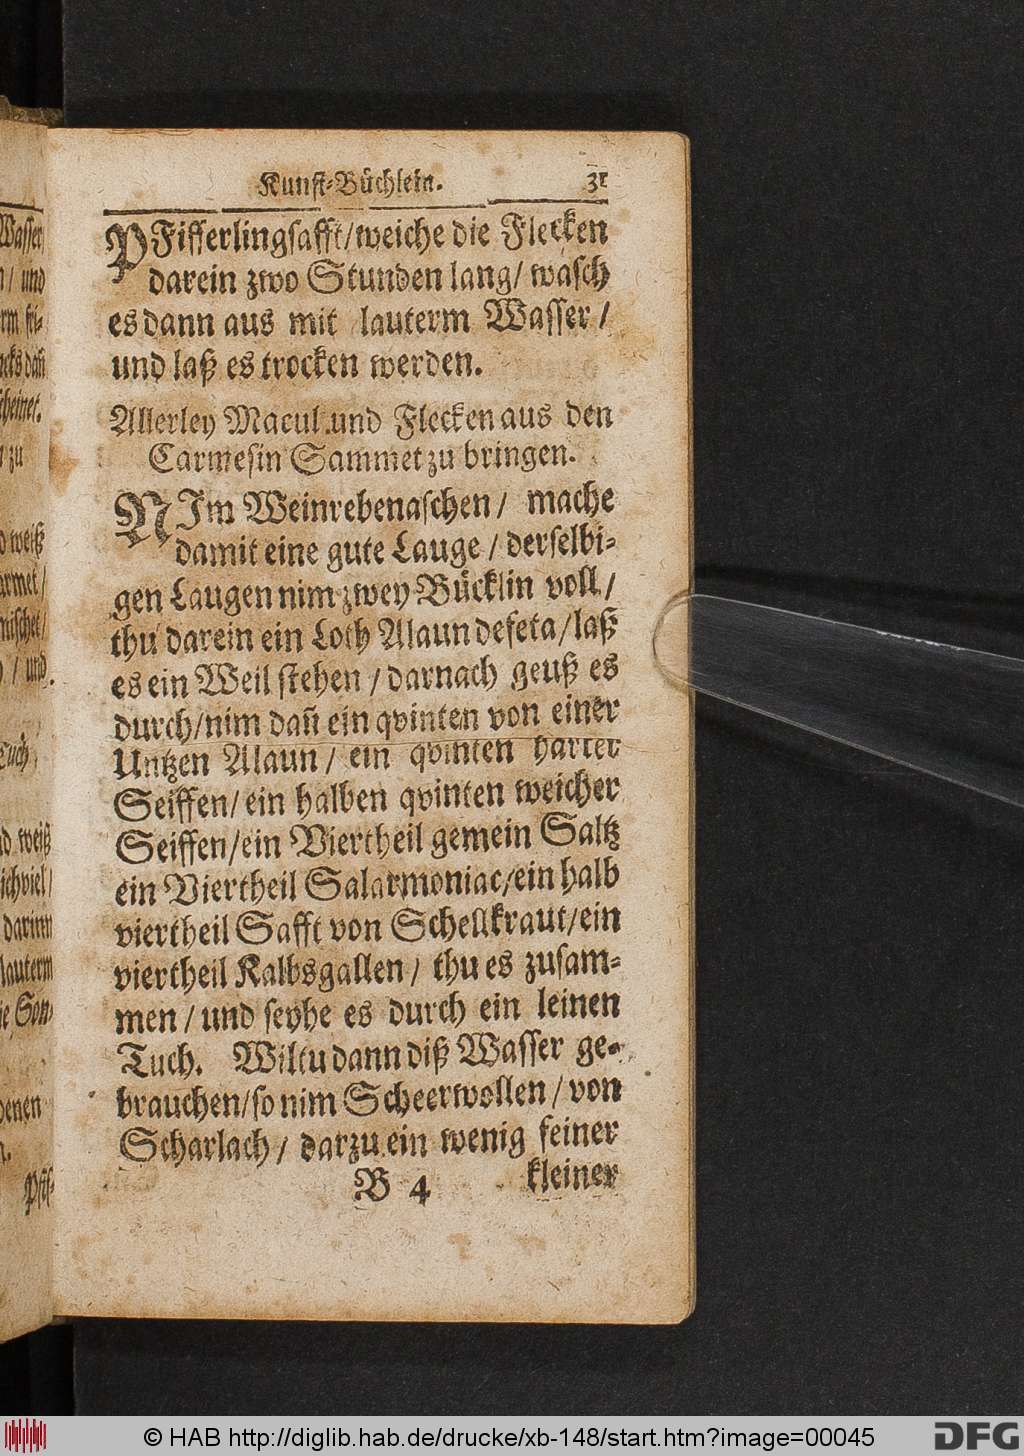 Kunst-Büchlein. 31
PFifferlingsafft/weiche die Flecken
darein zwo Stunden lang/ wasch
es dann aus mit lauterm Wasser /
und laß es trocken werden.
Allerley Macul und Flecken aus den
Carmesin Sammet zu bringen.
NIm Weinrebenaschen / mache
damit eine gute Lauge / derselbi-
gen Laugen nim zwey Bücklin voll /
thu darein ein Loth Alaun defeta/laß
es ein Weil stehen / darnach geuß es
durch/nim dañ ein qvinten von einer
Untzen Alaun / ein qvinten harter
Seiffen/ ein halben qvinten weicher
Seiffen/ein Viertheil gemein Saltz
ein Viertheil Salarmoniac/ein halb
viertheil Safft von Schellkraut/ein
viertheil Kalbsgallen / thu es zusam-
men / und seyhe es durch ein leinen
Tuch. Wiltu dann diß Wasser ge-
brauchen/so nim Scheerwollen / von
Scharlach / darzu ein wenig feiner
B 4 kleiner
© HAB http://diglib.hab.de/drucke/xb-148/start.htm?image=00045
DFG